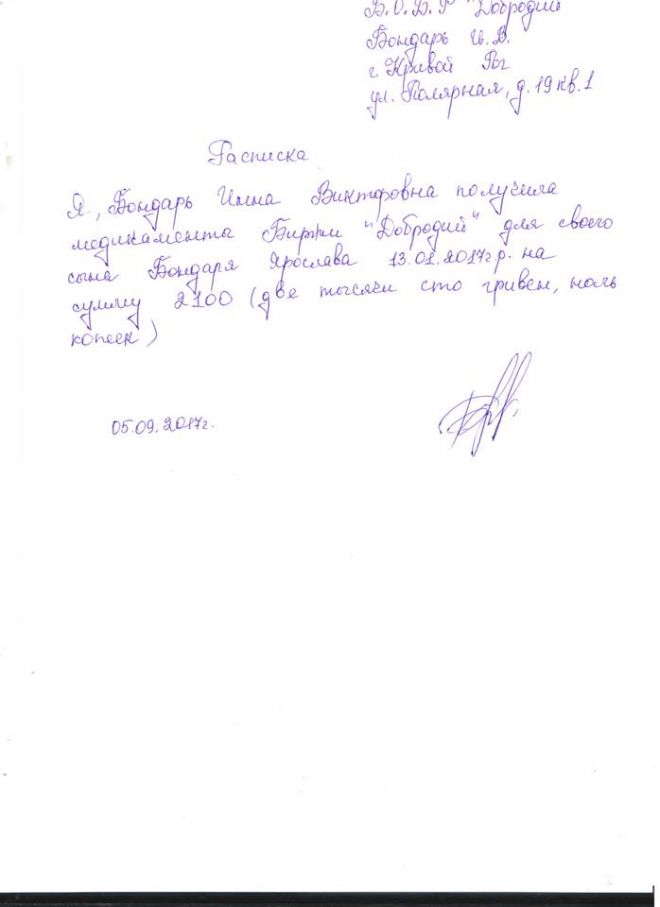 Б.О.Б.Р "Добродий"
Бондарь И.В.
г. Кривой Рог
ул. Полярная, д. 19 кв. 1
Расписка
Я, Бондарь Инна Викторовна получила
медикаменты Биржи "Добродий" для своего
сына Бондаря Ярослава 13.01.2017г.р. на
сумму 2100 (две тысячи сто гривен, ноль
копеек)
05.09.2017г.